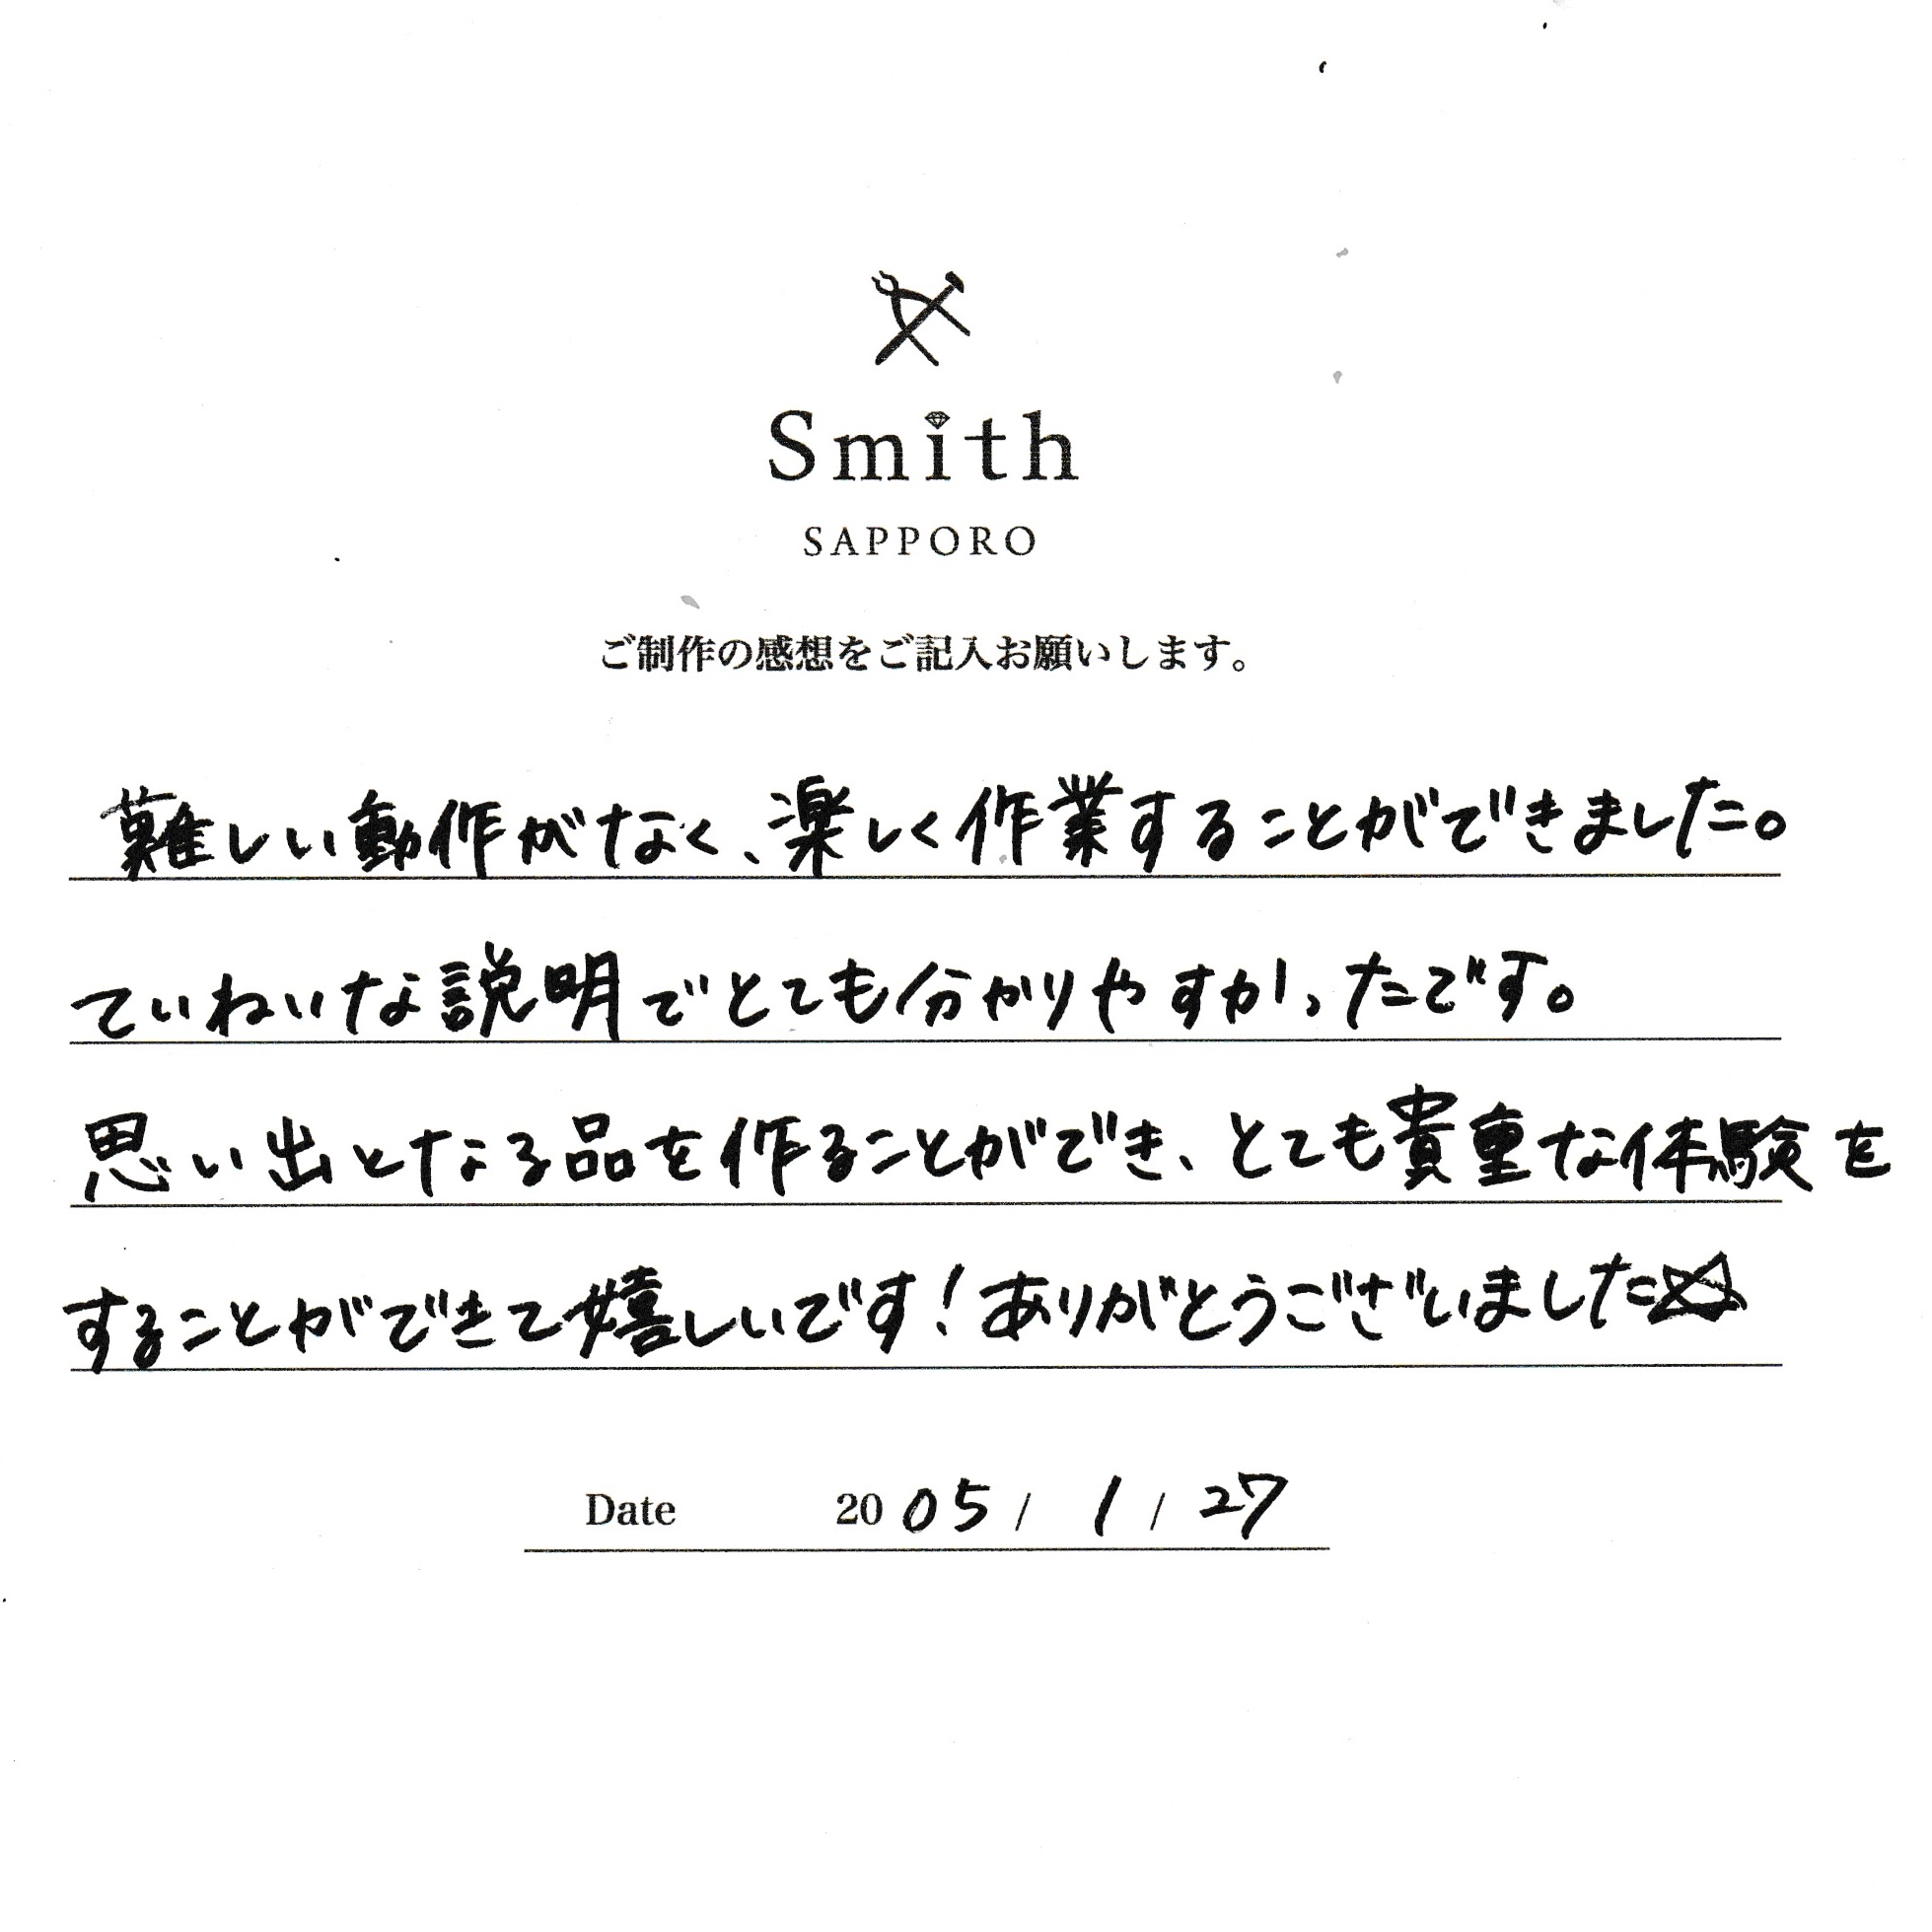 Smith
SAPPORO
ご制作の感想をご記入お願いします。
難しい動作がなく、楽しく作業することができました。
ていねいな説明でとても分かりやすかったです。
思い出となる品を作ることができ、とても貴重な体験を
することができて嬉しいです!ありがとうございました☆
Date 2005/1/27